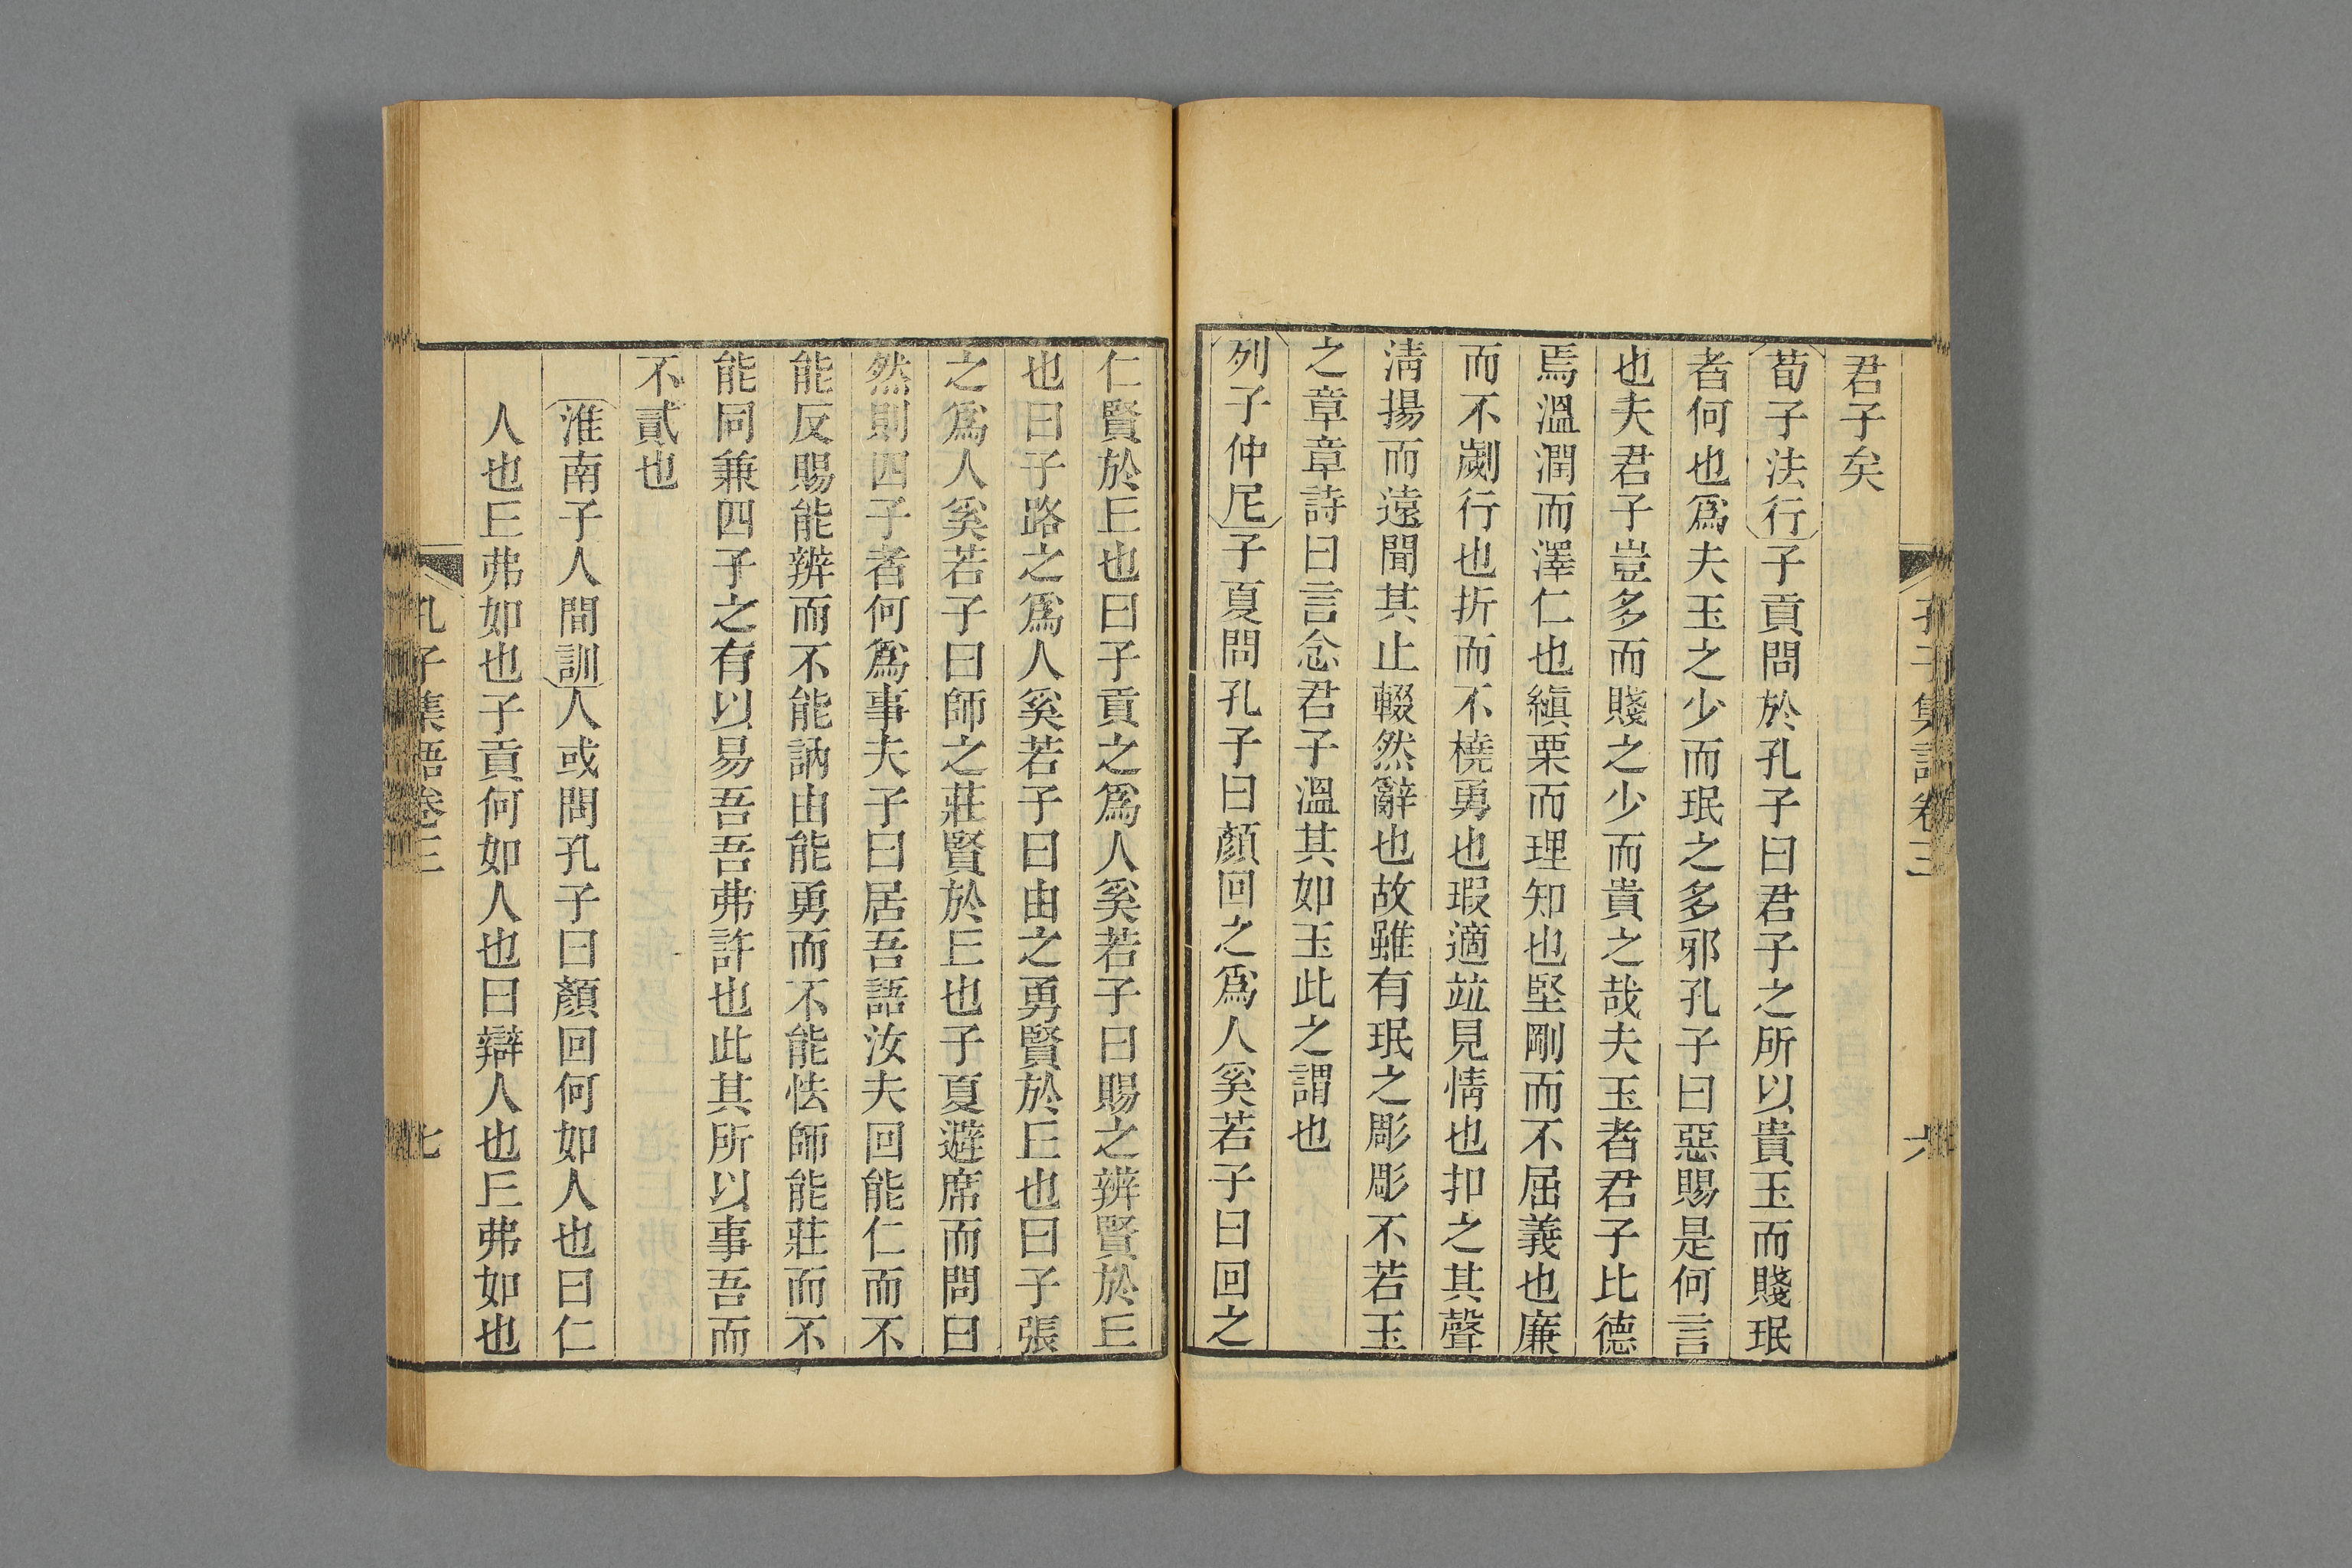 孔子集語卷三
六
君子矣
荀子法行子貢問於孔子曰君子之所以貴玉而賤珉
者何也爲夫玉之少而珉之多邪孔子曰惡賜是何言
也夫君子豈多而賤之少而貴之哉夫玉者君子比德
焉溫潤而澤仁也縝栗而理知也堅剛而不屈義也廉
而不劌行也折而不橈勇也瑕適竝見情也扣之其聲
淸揚而遠聞其止輟然辭也故雖有珉之彫彫不若玉
之章章詩曰言念君子溫其如玉此之謂也
列子仲尼子夏問孔子曰顏回之爲人奚若子曰回之
仁賢於𠀉也曰子貢之爲人奚若子曰賜之辨賢於𠀉
也曰子路之爲人奚若子曰由之勇賢於𠀉也曰子張
之爲人奚若子曰師之莊賢於𠀉也子夏避席而問曰
然則四子者何爲事夫子曰居吾語汝夫回能仁而不
能反賜能辨而不能訥由能勇而不能怯師能莊而不
能同兼四子之有以易吾吾弗許也此其所以事吾而
不貳也
淮南子人間訓人或問孔子曰顏回何如人也曰仁
人也𠀉弗如也子貢何如人也曰辯人也𠀉弗如也
孔子集語卷三
七